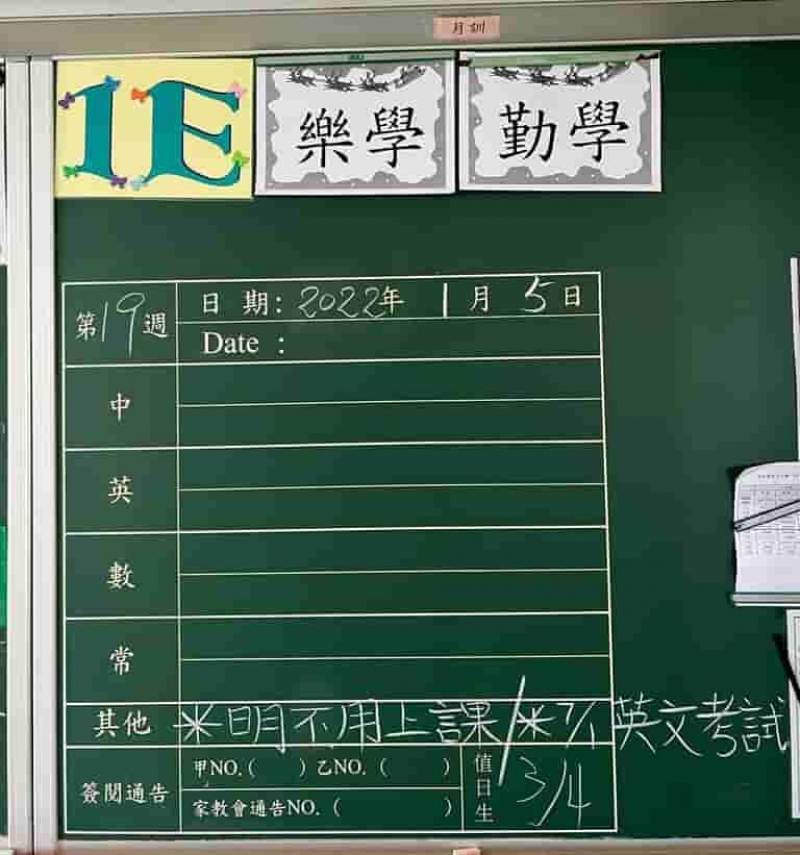 月訓
1E 樂學 勤學
第19週
日期：2022年 1月 5日
Date：
中
英
數
常
其他 *明不用上課/*7/1英文考試
簽閱通告
甲NO.( ) 乙NO.( )
家教會通告NO.( )
值日生 3/4